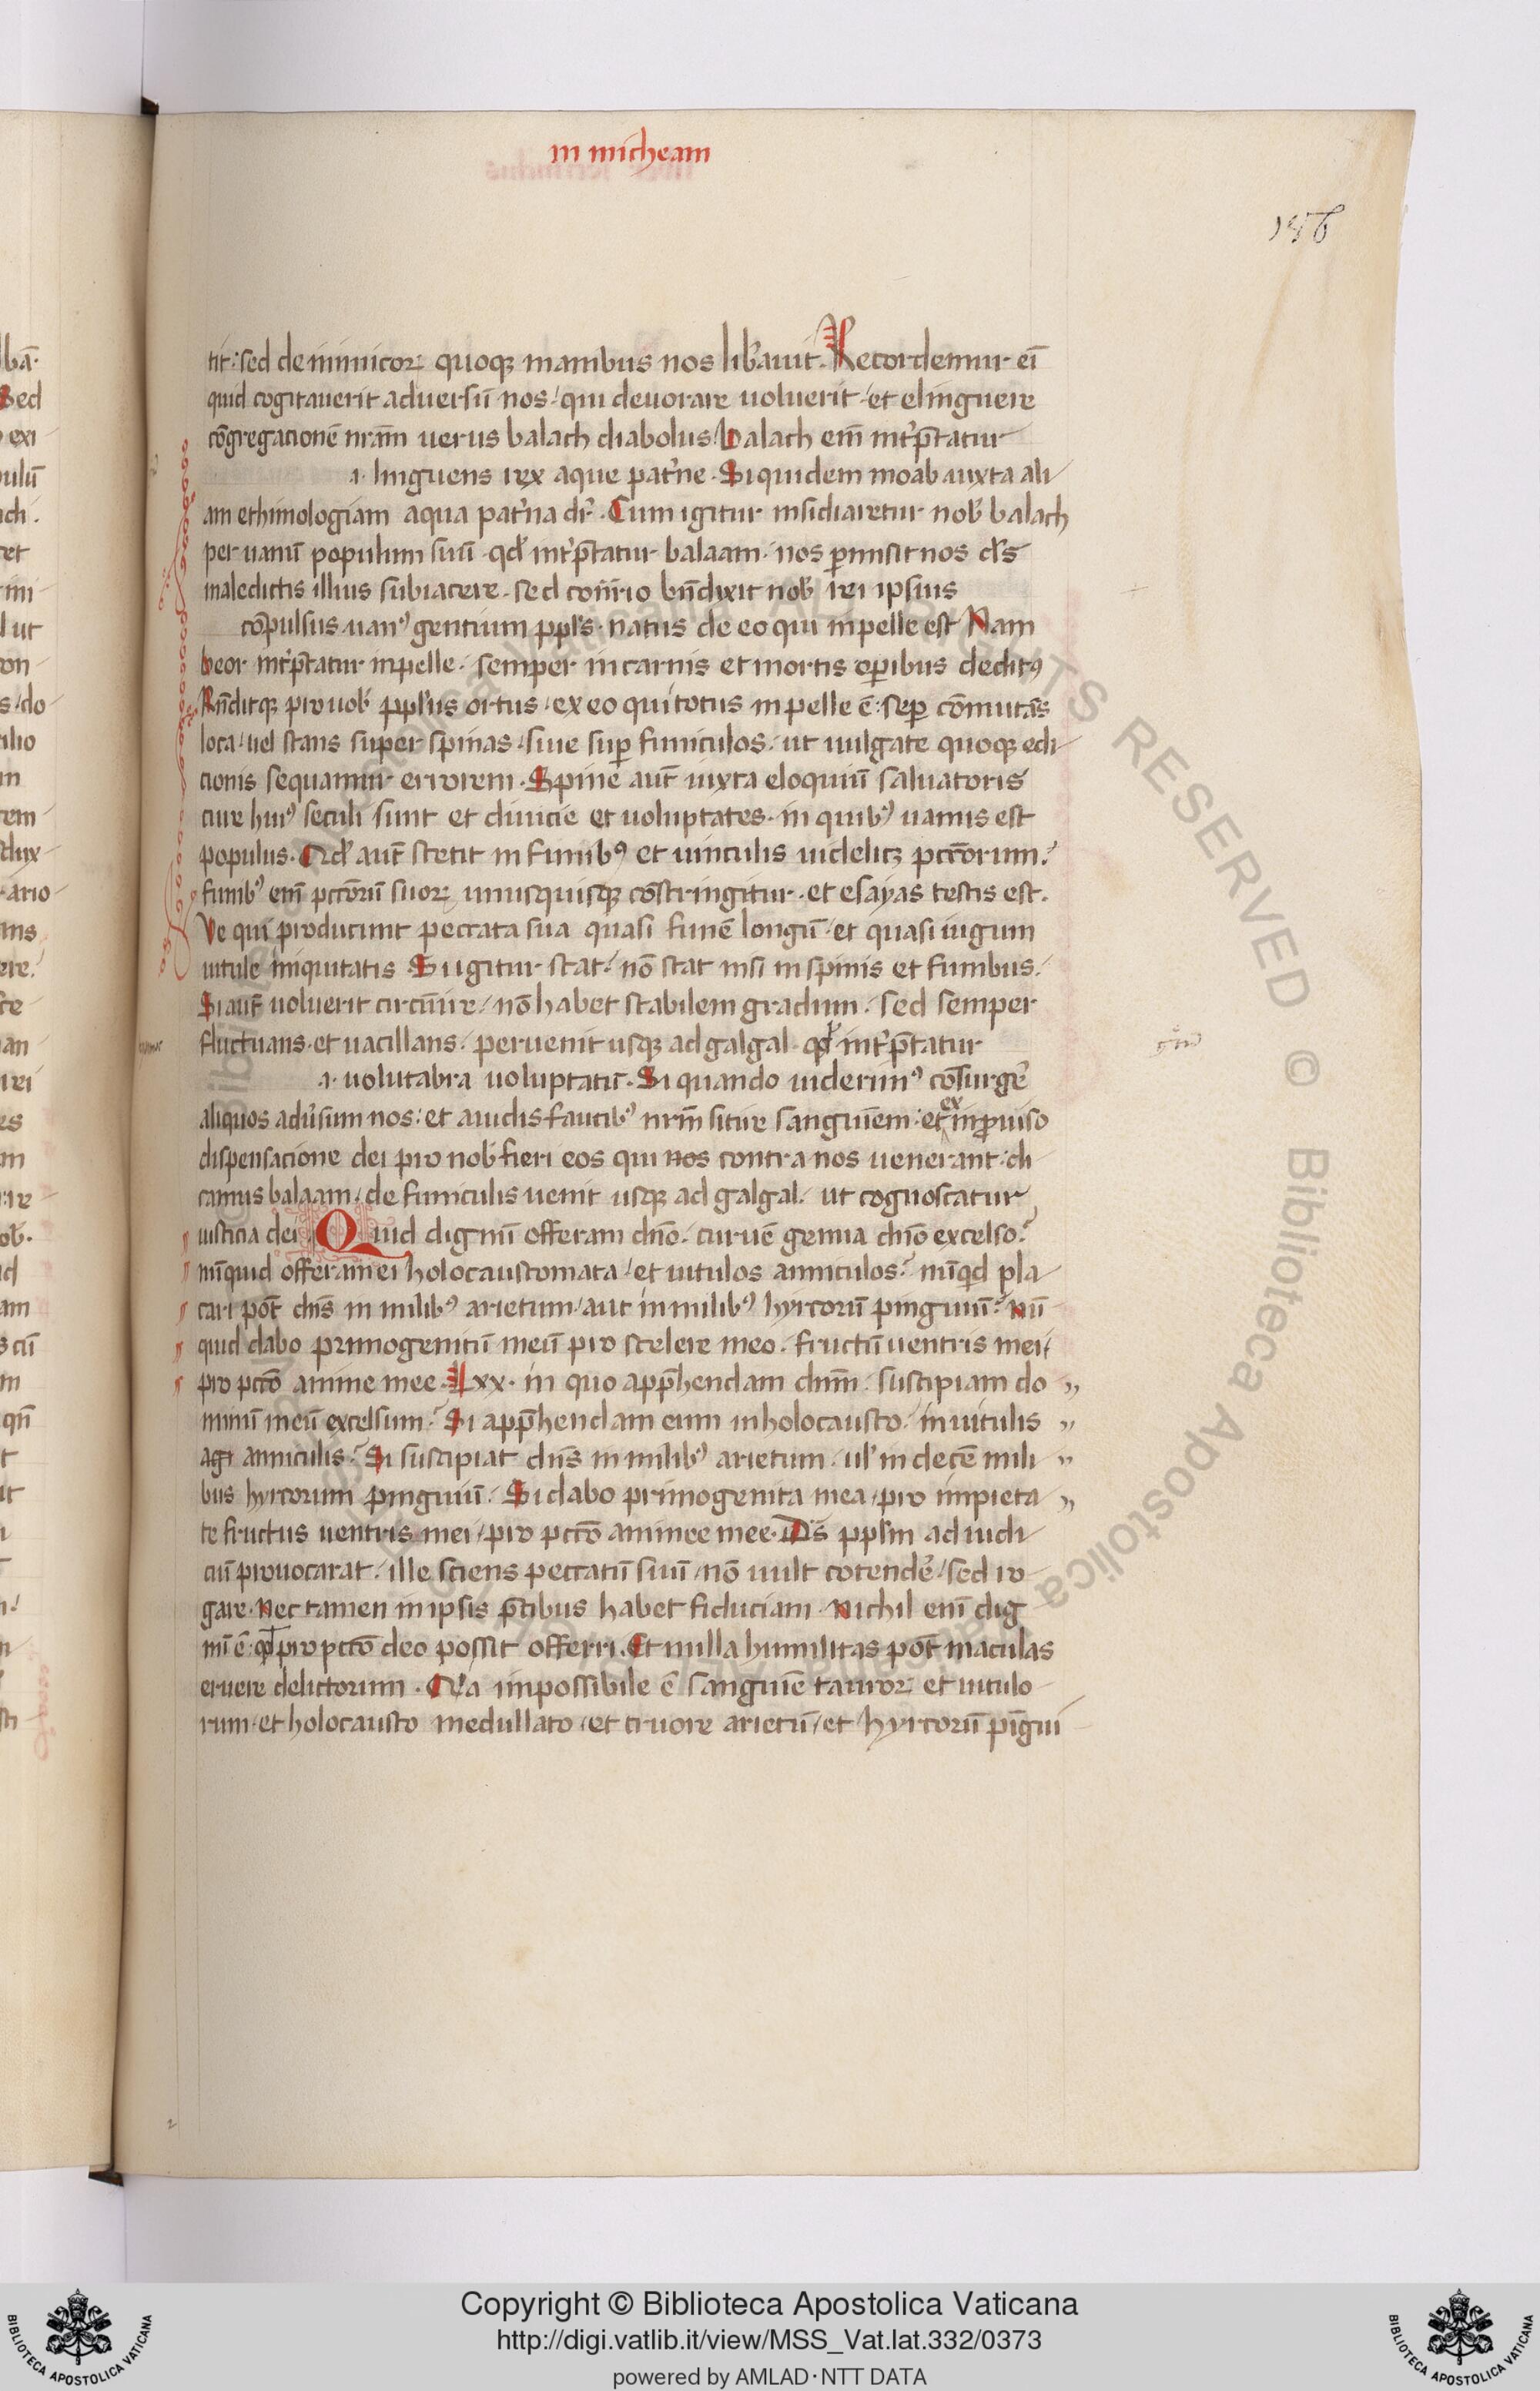 in micheam
186
tit: sed de inimicoꝝ quoqꝫ manibus nos lib̓auit. Recordemur ei̅
quid cogitauerit aduersu̅ nos / qui deuorare uoluerit / et elinguere
co̅gregacione̅ nr̅am uerus balach diabolus / balach em̅ int̓p̅tatur
.i. linguens rex aque pat̓ne. Siquidem moab iuxta ali
am ethimologiam aqua pat̓na dr̅. Cum igitur insidiaretur nob̓ balach
per uanu̅ populum suu̅ qd̓ int̓p̅tatur balaam. nos ꝑmisit nos d̅s
maledictis illius subiacere. sed cont̅rio bn̅dixit nob̓ rei ipsius
co̅pulsus uanꝰ gentium ppl̓s. natus de eo qui in pelle est Nam
beor int̓p̅tatur in pelle. semper in carnis et mortis oꝑibus deditꝰ
Rn̅ditqꝫ pro uob̓ ppl̓us ortus / ex eo qui totus in pelle e̅: seꝑ co̅muta̅s
loca / uel stans super spinas / siue suꝑ funiculos. ut uulgate quoqꝫ edi
cionis sequamur errorem. Spine aut̅ iuxta eloquiu̅ saluatoris
cure huiꝰ seculi sunt et diuicie et uoluptates. in quibꝰ uanus est
populus. Qd̓ aut̅ stetit in funibꝰ et uinculis uidelicꝫ pcc̅orum.
funibꝰ em̅ pcc̅oru̅ suoꝝ unusquisqꝫ co̅stringitur. et esayas testis est.
Ve qui producunt peccata sua quasi fune̅ longu̅ / et quasi iugum
uitule iniquitatis Si igitur stat / no̅ stat nisi in spinis et funibus.
Si aut̅ uoluerit circu̅ire / no̅ habet stabilem gradum. sed semper
fluctuans et uacillans. peruenit usqꝫ ad galgal. qd̓ int̓p̅tatur
.i. uolutabra uoluptatu̅. Si quando uiderimꝰ co̅surge̅
aliquos adu̓sum nos: et auidis faucibꝰ nr̅m sitire sanguinem: et ex inprouiso
dispensacione dei pro nob̓ fieri eos qui nos contra nos uenerant: di
camus balaam / de funiculis uenit usqꝫ ad galgal. ut cognoscatur
iusticia dei. Quid dignu̅ offeram dn̅o. curue̅ genua dn̅o excelso?
nu̅quid offeram ei holocaustomata / et uitulos anniculos? nu̅qd pla
cari pot̅ dn̅s in milibꝰ arietum / aut in milibꝰ hyrcoru̅ pinguiu̅? nu̅
quid dabo primogenitu̅ meu̅ pro scelere meo. fructu̅ uentris mei /
pro pcc̅o anime mee. Lxx. in quo app̅hendam dn̅m. suscipiam do
minu̅ meu̅ excelsum? Si app̅hendam eum in holocausto. in uitulis
agi anniculis? Si suscipiat dn̅s in milibꝰ arietum. ul̓ in dece̅ mili
bus hyrcorum pinguiu̅. Si dabo primogenita mea / pro impieta
te fructus uentris mei / pro pcc̅o anime mee. Ds̅ ppl̓m ad iudi
ciu̅ prouocarat. ille sciens peccatu̅ suu̅ / no̅ uult co̅tende̅ / sed ro
gare. Nec tamen in ipsis p̅cibus habet fiduciam. Nichil eni̅ dig
nu̅ e̅ qd̓ pro pcc̅o deo possit offerri. Et nulla humilitas pot̅ maculas
eruere delictorum. Q̓a impossibile e̅ sanguine̅ tauroꝝ et uitulo
rum. et holocausto medullato / et cruore arietu̅ / et hyrcoru̅ pi̅gui
Copyright © Biblioteca Apostolica Vaticana
http://digi.vatlib.it/view/MSS_Vat.lat.332/0373
powered by AMLAD·NTT DATA